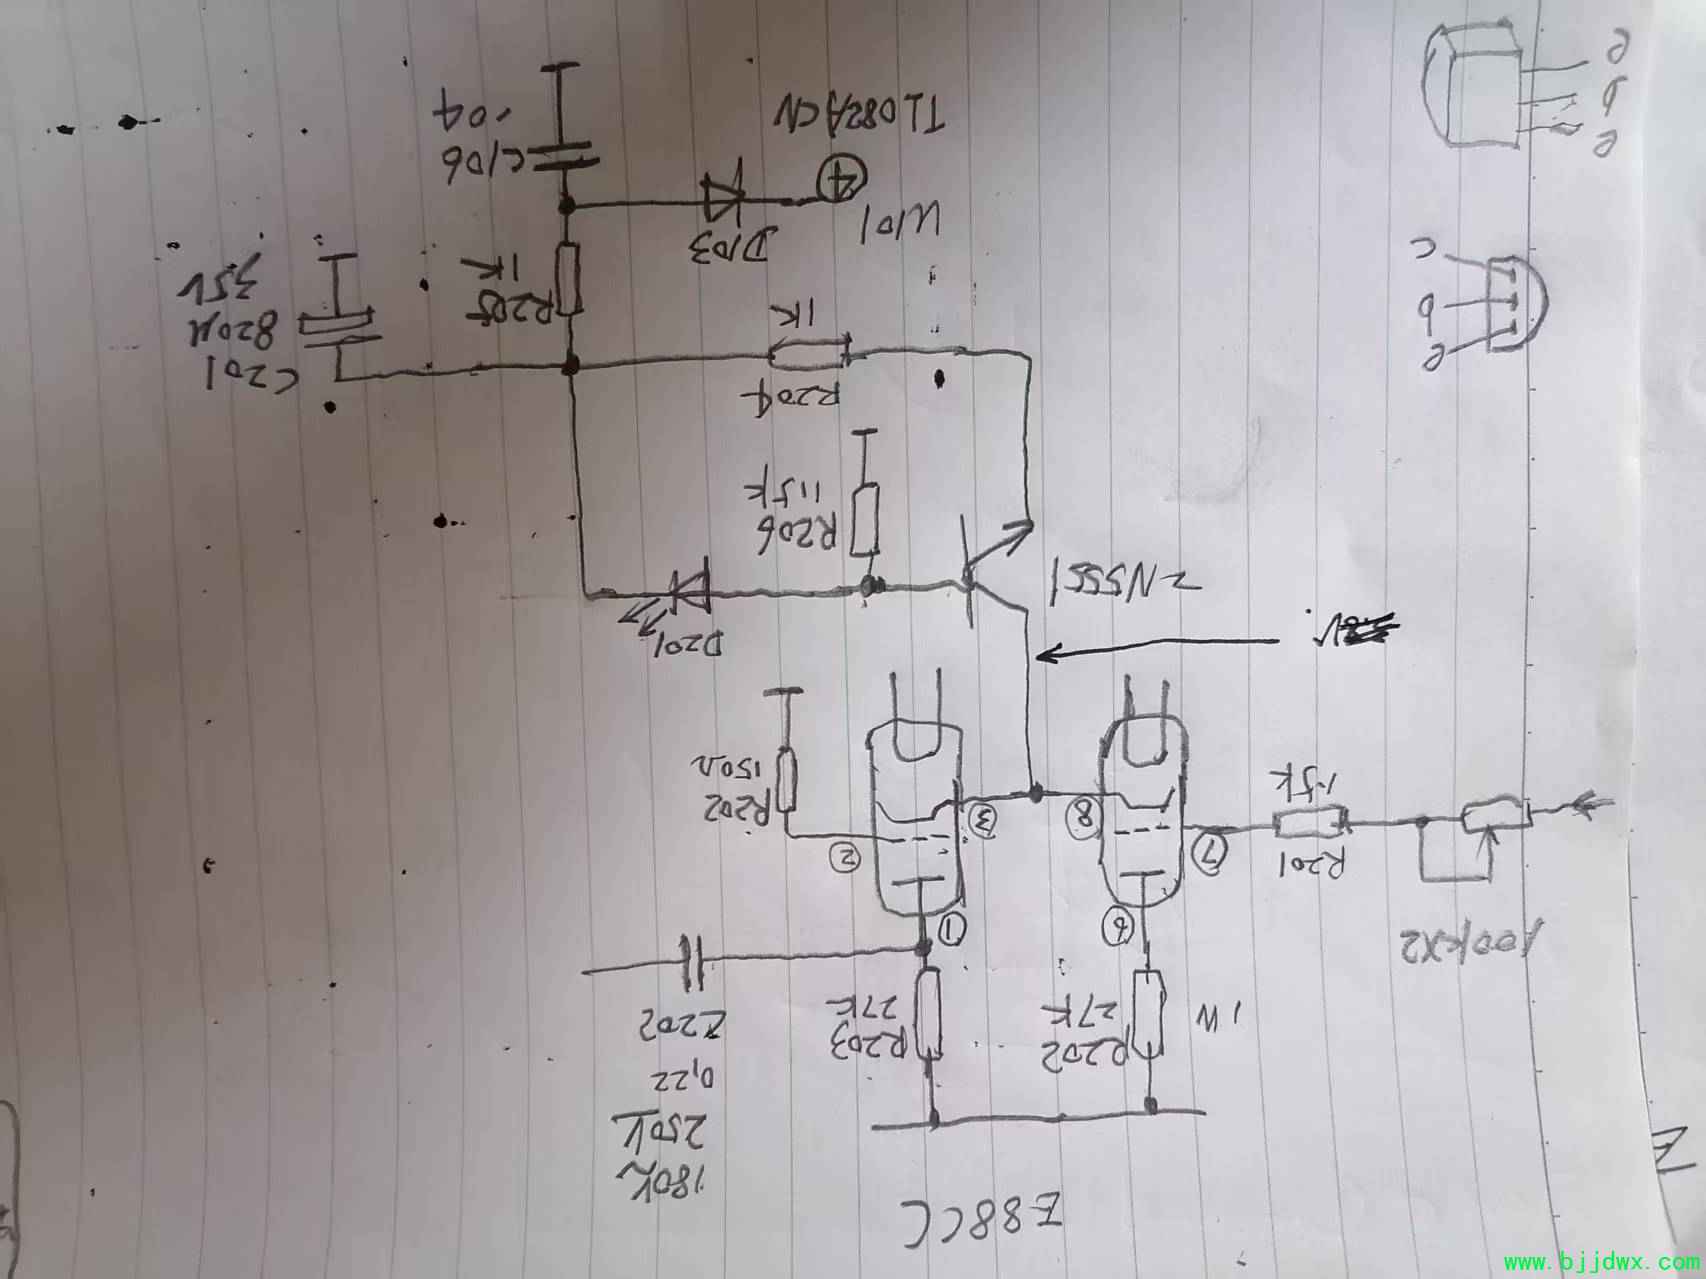 E88CC
180V
250V
0,22
C202
R203
27K
R202
27K
1W
100K×2
1
6
2
3
8
7
R202
150Ω
R201
1.5K
D201
2N5551
R206
11,5K
R204
1K
C201
820μ
35V
R205
1K
D103
U101
4
TL082ACN
C106
.04
e
b
c
e
b
www.bjjdwx.com